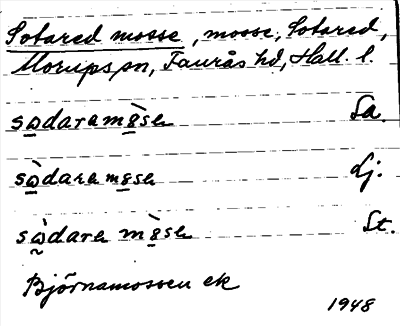 Sotared mosse, mosse, Sotared,
Morups sn, Faurås hd, Hall. l.
sω̲daramø̲̀sɐ Sa.
sὼ̲daramø̲sɐ Lj.
sὼ̲darɐ mø̲̀sɐ St.
Björnamossen ek
1948